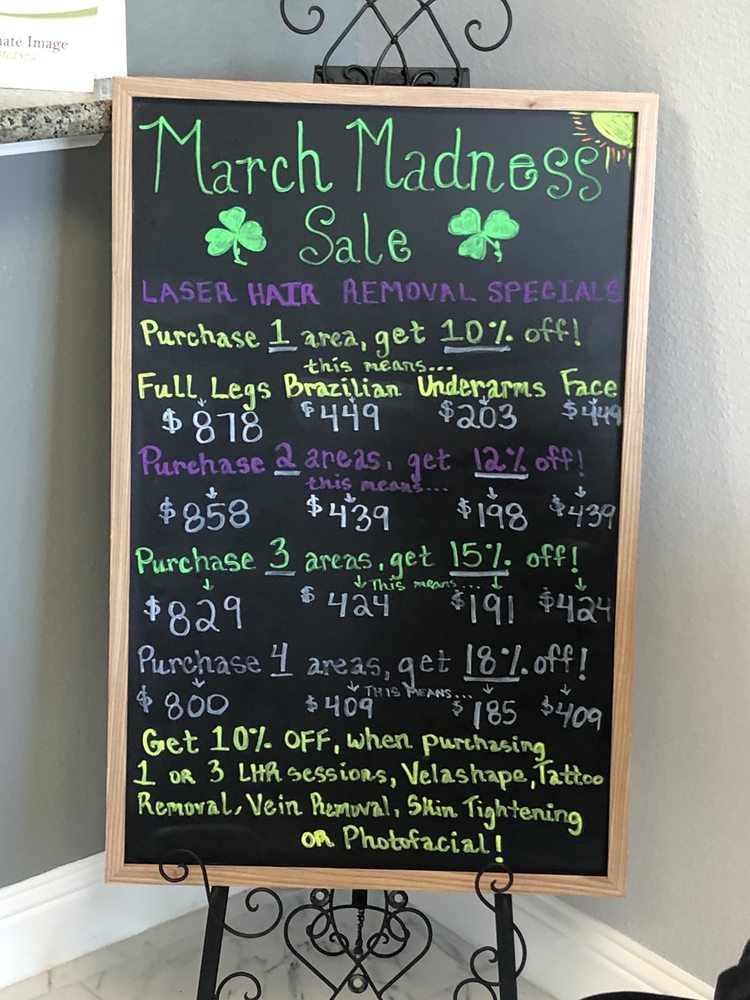 ate Image
MedSpa
March Madness
Sale
LASER HAIR REMOVAL SPECIALS
Purchase 1 area, get 10% off!
this means...
Full Legs Brazilian Underarms Face
$878 $449 $203 $449
Purchase 2 areas, get 12% off!
this means...
$858 $439 $198 $439
Purchase 3 areas, get 15% off!
This means...
$829 $424 $191 $424
Purchase 4 areas, get 18% off!
THIS MEANS...
$800 $409 $185 $409
Get 10% OFF, when purchasing
1 OR 3 LHR sessions, Velashape, Tattoo
Removal, Vein Removal, Skin Tightening
OR Photofacial!